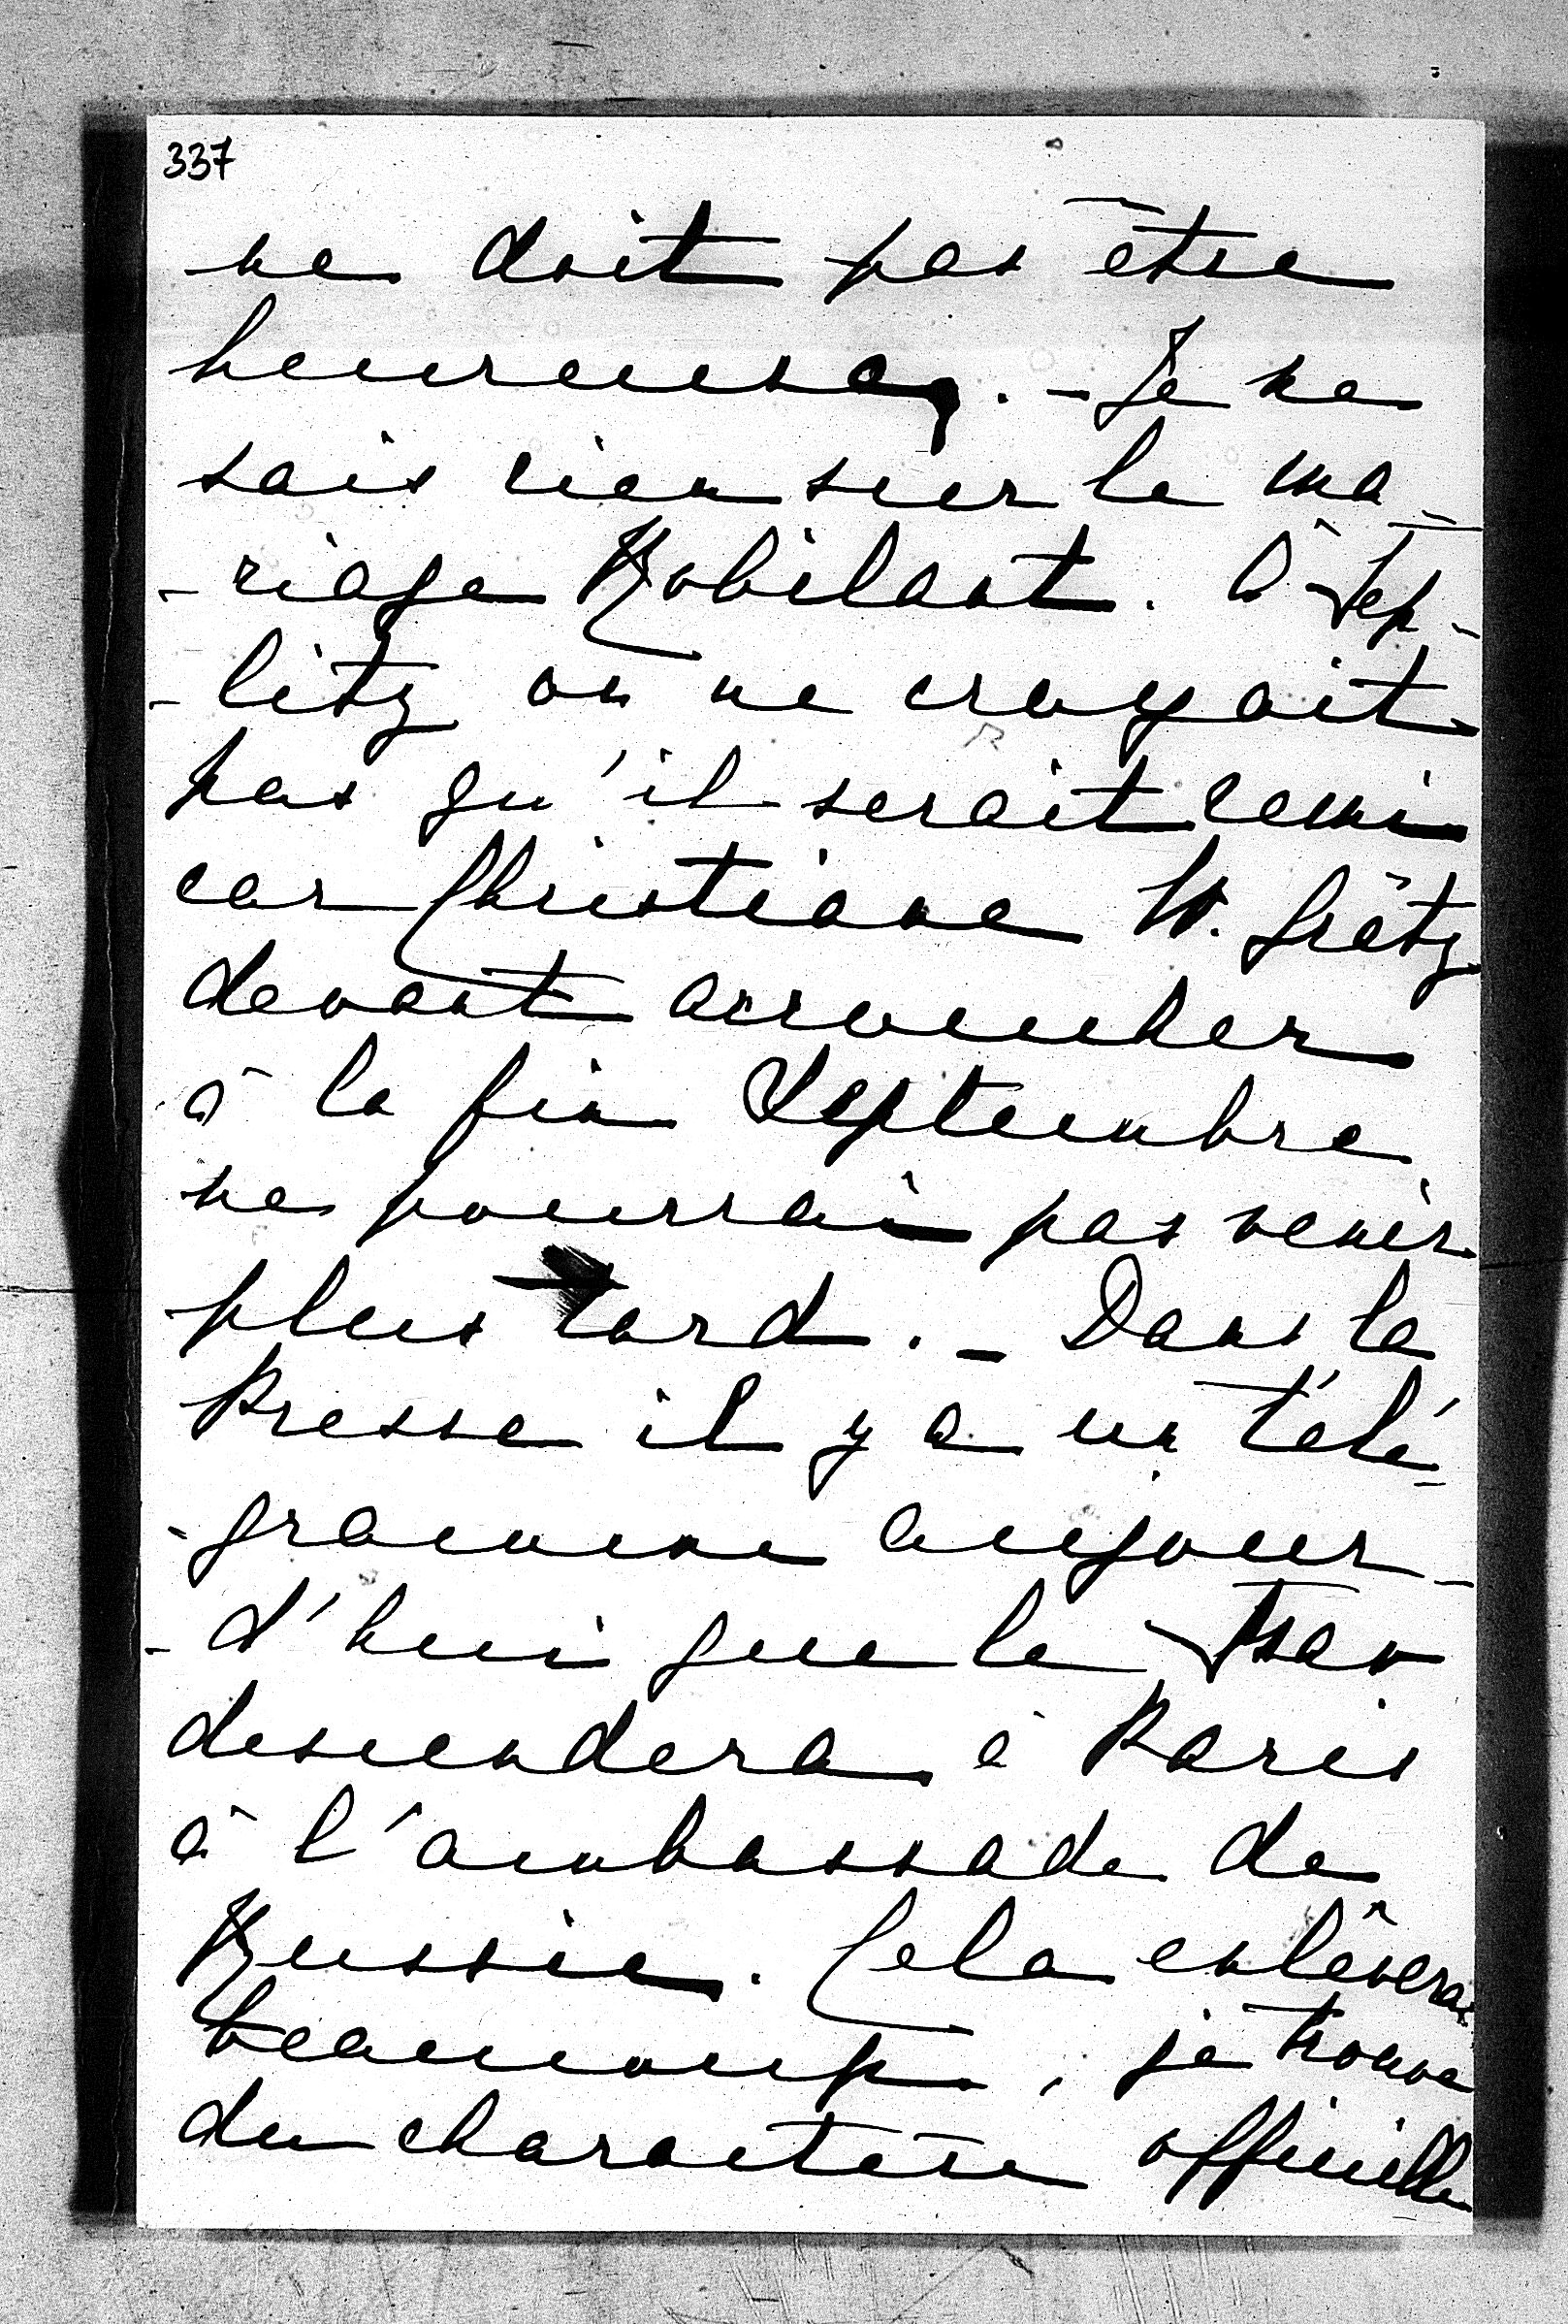 337
ne doit pas être
heureuse. - Je ne
sais rien sur le ma-
-riage Robilant. à Tep-
-litz on ne croyait
pas qu'il serait remi
car Christiane W. Grätz
devant accoucher
à la fin Septembre
ne pourrai pas venir
plus tard. - Dans la
Presse il y a un télé-
-gramme aujour-
-d'hui que le Tsar
descendera à Paris
à l'ambassade de
Russie. Cela enlèvera
beaucoup, je trouve
du charactère officielle